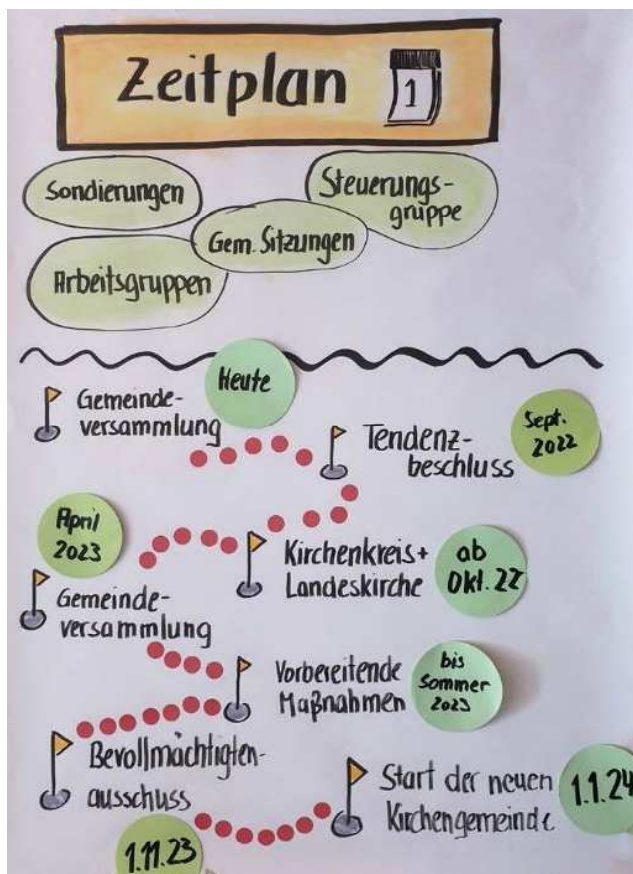 Zeitplan
1
Sondierungen
Steuerungs-
gruppe
Gem. Sitzungen
Arbeitsgruppen
Heute
Gemeinde-
versammlung
Sept.
2022
Tendenz-
beschluss
April
2023
Kirchenkreis+
Landeskirche
ab
Okt. 22
Gemeinde-
versammlung
Vorbereitende
Maßnahmen
bis
Sommer
2023
Bevollmächtigten-
ausschuss
1.11.23
Start der neuen
Kirchengemeinde
1.1.24